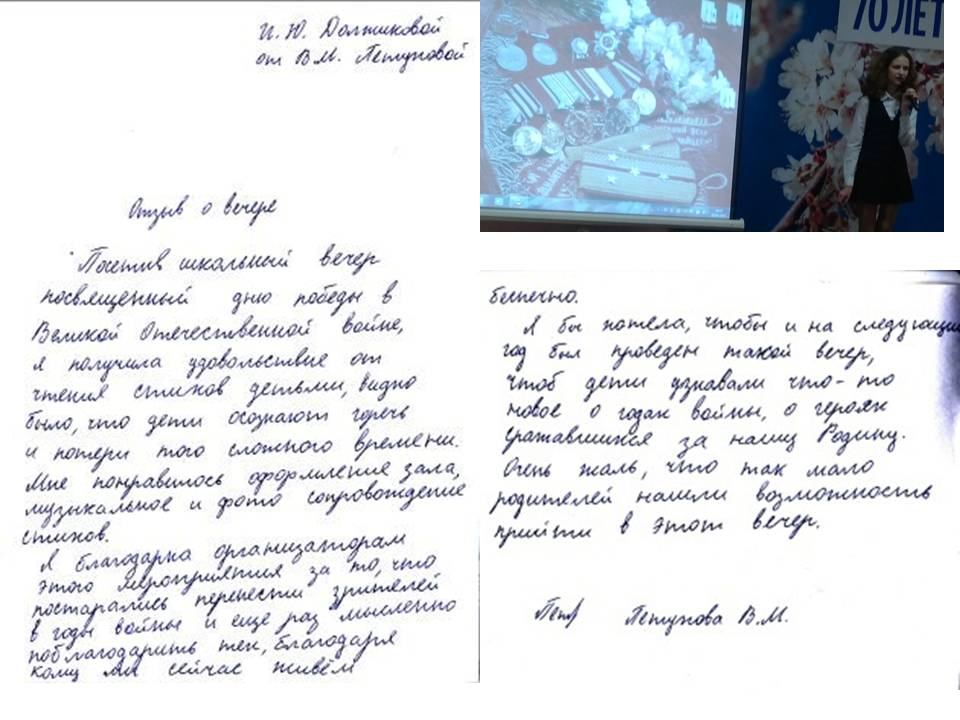 И. Ю. Должиковой
от В.М. Петуховой
Отзыв о вечере
Посетив школьный вечер
посвященный дню победы в
Великой Отечественной войне,
я получила удовольствие от
чтения стихов детьми, видно
было, что дети осознают горечь
и потери того сложного времени.
Мне понравилось оформление зала,
музыкальное и фото сопровождение
стихов.
Я благодарна организаторам
этого мероприятия за то, что
постарались перенести зрителей
в годы войны и еще раз мысленно
поблагодарить тех, благодаря
кому мы сейчас живём
70 ЛЕТ
беспечно.
Я бы хотела, чтобы и на следующий
год был проведен такой вечер,
чтоб дети узнавали что-то
новое о годах войны, о героях
сражавшихся за нашу Родину.
Очень жаль, что так мало
родителей нашли возможность
прийти в этот вечер.
Петухова В.М.